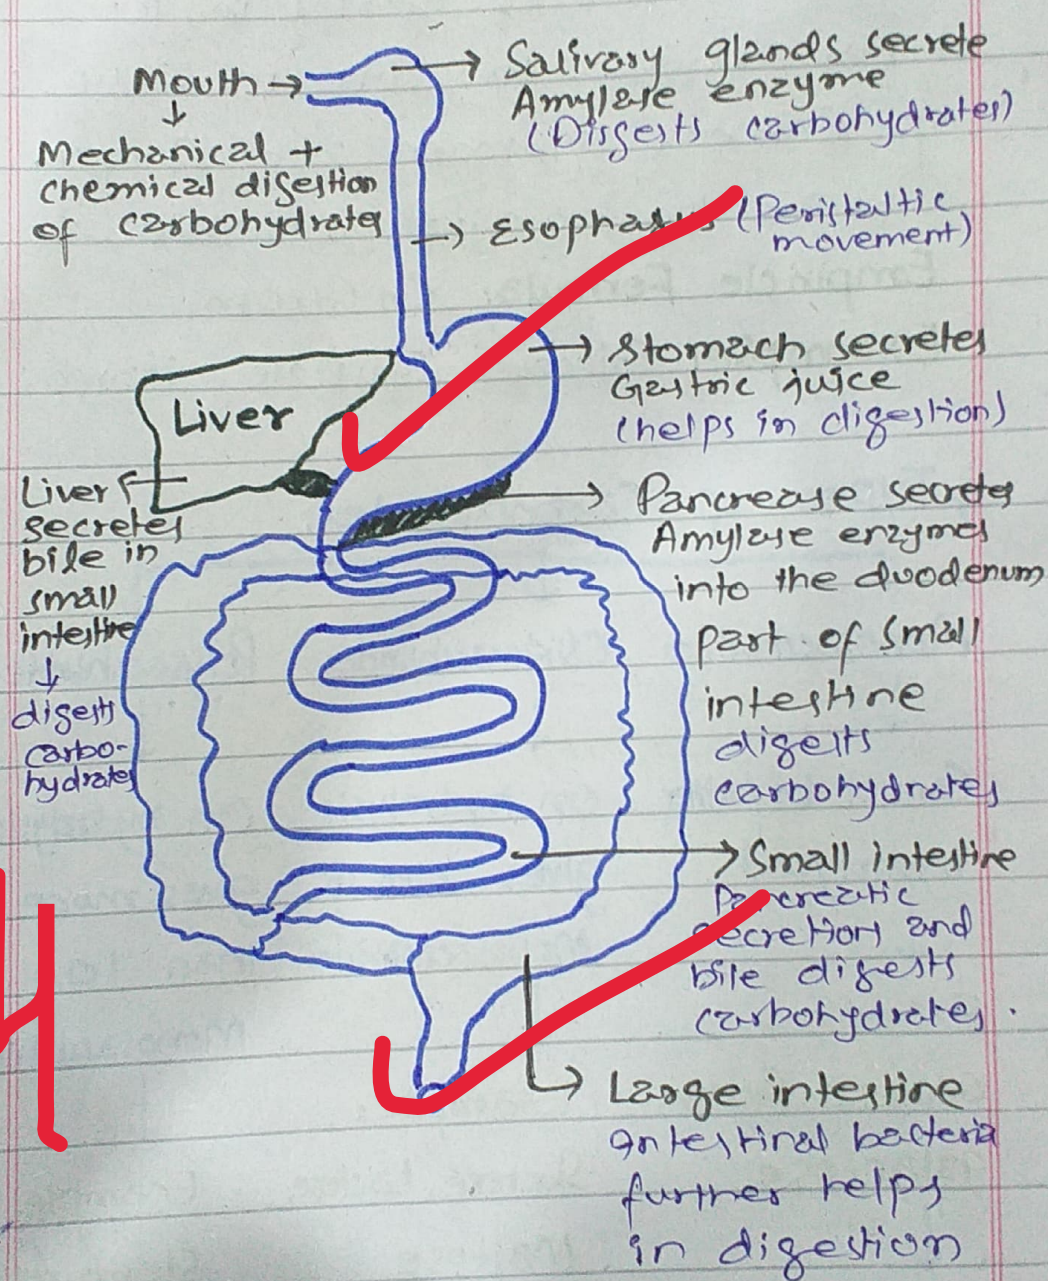 Mouth →
↓
Mechanical +
chemical digestion
of carbohydrates
→ Salivary glands secrete
Amylase enzyme
(Disgests carbohydrates)
→ (Peristaltic
movement)
→ Stomach secretes
Gastric juice
(helps in digestion)
Liver
Liver
secretes
bile in
small
intestine
↓
digests
carbo-
hydrates
→ Pancrease secretes
Amylase enzymes
into the duodenum
part of small
intestine
digests
carbohydrates
→ Small intestine
Pancreatic
secretions and
bile digests
carbohydrates.
→ Large intestine
Intestinal bacteria
further helps
in digestion